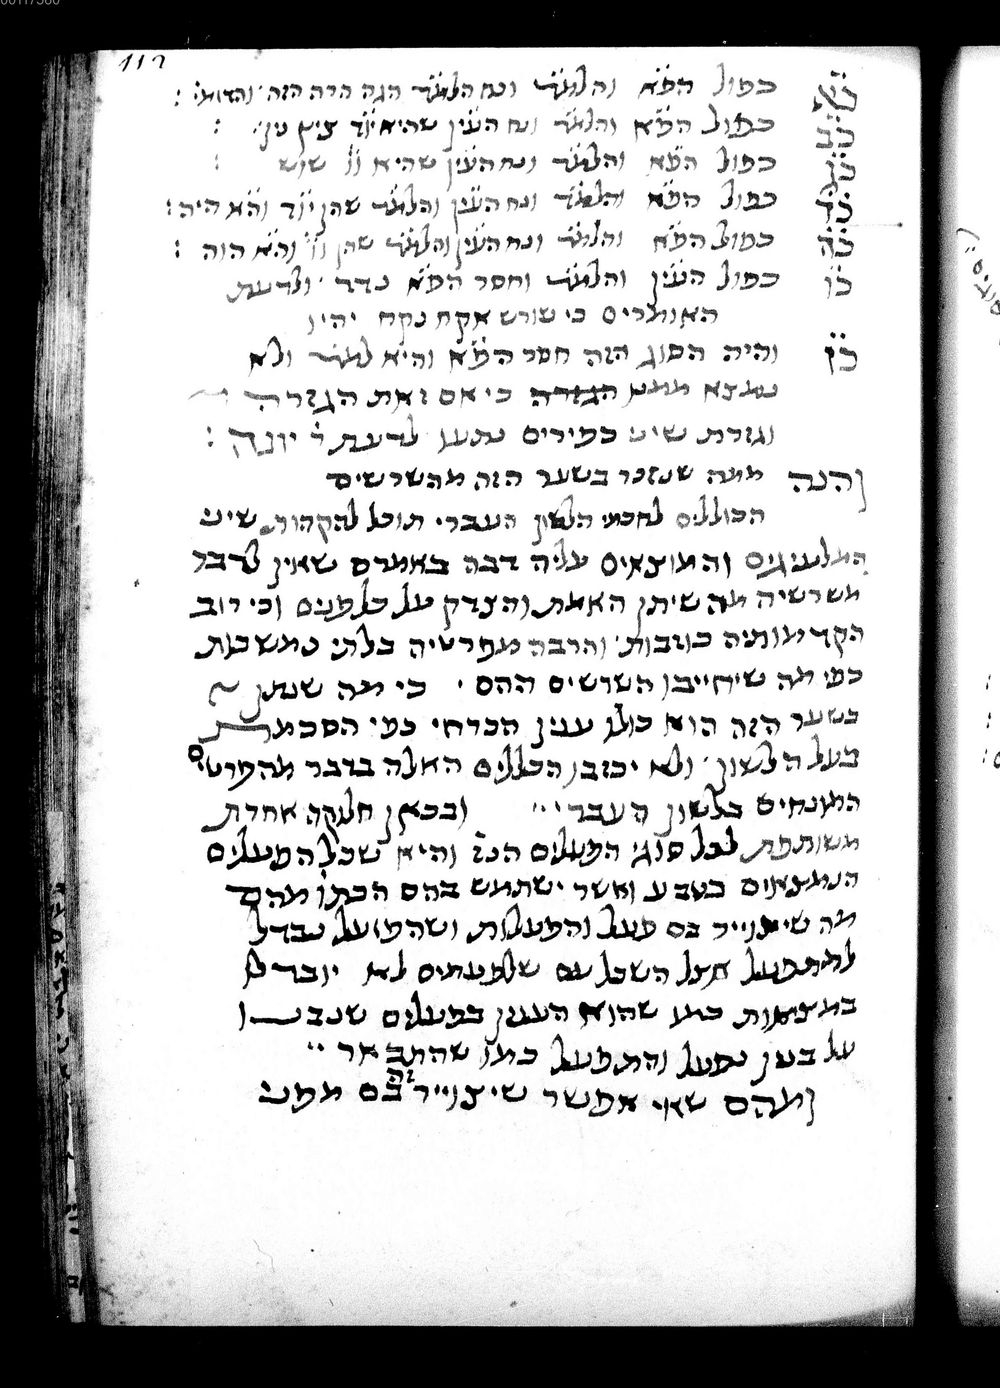 112
כ״א כפול הפ״א והלמ״ד ונח הלמ״ד הגה הרה הזה והדומי׳ :
כ״ב כפול הפ״א והלמ״ד ונח העי״ן שהיא יו״ד ציץ נין :
כ״ג כפול הפ״א והלמ״ד ונח העי״ן שהיא ו״ו שוש :
כ״ד כפול הפ״א והלמ״ד ונח העי״ן והלמ״ד שהן יו״ד וה״א היה :
כ״ה כפול הפ״א והלמ״ד ונח העי״ן והלמ״ד שהן ו״ו וה״א הוה :
כ״ו כפול העי״ן והלמ״ד וחסר הפ״א נדד ולדעת
האומרים כי שורש אקח נקח יהיו
כ״ז והיה הסוג הזה חסר הפ״א והיא למ״ד ולא
נמצא ממנו הגזרה כי אם זאת הגזרה
וגזרת שיש כפירים נתעו לדעת ר׳ יונה :
והנה ממה שנזכר בשער הזה מהשרשים
הכוללים לחכמי הלשון העברי תוכל להקהות שיני
המלעיגים והמוצאים עליה דבה באמרם שאין לדבר
משרשיה מה שיתן האמת והצדק על כל פנים וכי רוב
הקדמותיה כוזבות והרבה מפרטיה בלתי נמשכות
כפי מה שיחייבו השרשים ההם כי מה שנתן
בשער הזה הוא כולו ענין הכרחי כפי הסכמת
בעל הלשון ולא יכזבו הכללים האלה בדבר מהפרטי׳
המונחים בלשון העברי ובכאן חלוקה אחרת
משותפת לכל סוגי הפעלים הנז׳ והיא שכל הפעלים
הנמצאים בטבע ואשר ישתמש בהם הכתו׳ מהם
מה שיצוייר בם פועל והפעלות ושהפועל נבדל
למתפעל אצל השכל עם שלפעמים לא יובדל
במציאות כמו שהוא הענין בפעלים שנבנו
על בנין נפעל והתפעל כמו שהתבאר
ומהם שאי אפשר שיצוייר זה בם ממנו